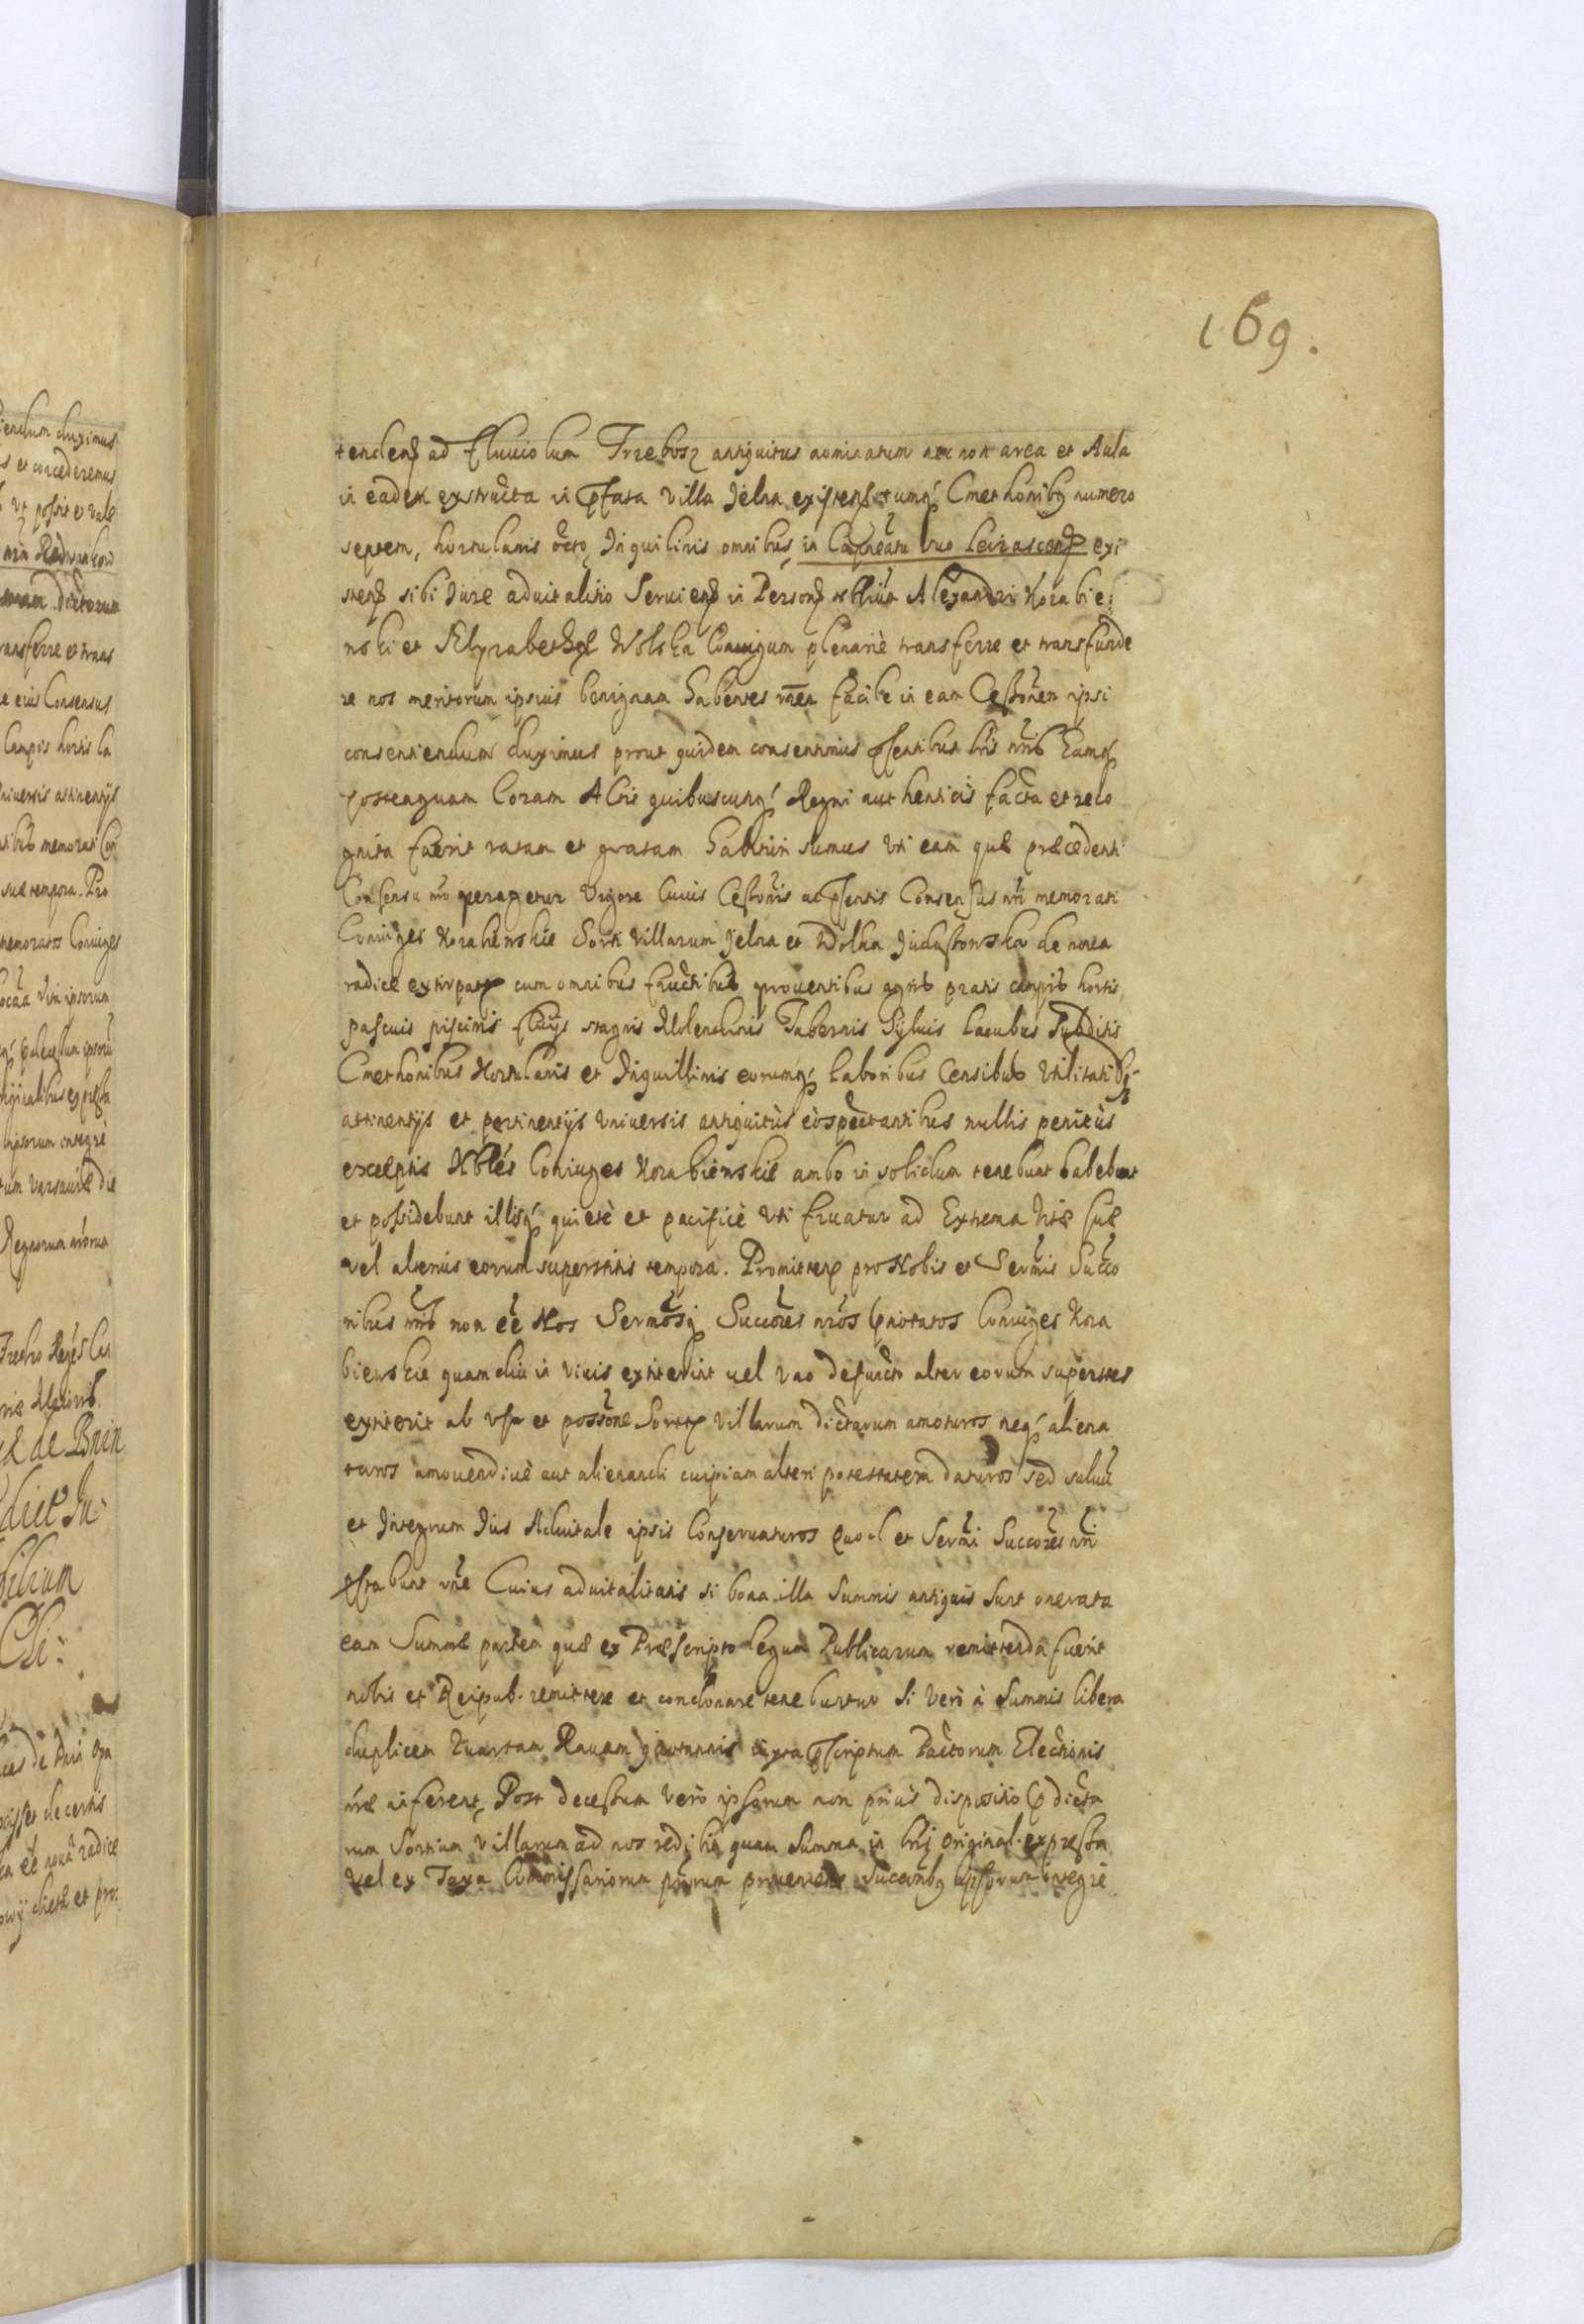 169.
tendens ad fluviolum Trzebosz antiquitus nominatum nec non area et Aula
in eadem exstructa in pfata villa Jelna existens tumq Cmethonibq numero
septem, hortulanis octo, Inquilinis omnibus, in Capneatu vno Leiz exi
stens sibi Jure advitalitio Serviens in Person Nblium Alexandri Korabie
nski et Elyzabethæ Wolska Coniugum plenariè transferre et transfunde
re nos meritorum ipsius benignam habentes rñen facile in eam Cessionem ipsi
consentiendum duximus prout quidem consentimus psentibus lris nris Eamq
posteaquam Coram Actis quibuscunq Regni authenticis facta et reco
gnita fuerit ratam et gratam habituri sumus vti eam quæ præcedenti
Consensu nro peragetur Vigore Cuius Cessionis ac psentis Consensus nri memorati
Coniuges Korabienskie Sorti villarum Jelna et Wolka de nova
radice extirpatæ cum omnibus fructibus proventibus agris pratis campis hortis
pascuis piscinis fluvijs stagnis Molendinis Tabernis Sylvis Lacubus Subditis
Cmethonibus Hortulanis et Inquillinis eorumq Laboribus Censibus Vtilitatibq
attinentijs et pertinentijs Vniversis antiquitùs eòspectantibus nullis penitùs
exceptis Nbles Coniuges Korabienskie ambo in solidum tenebunt habebunt
et possidebunt illisq quietè et pacificè Vti fruatur ad Extrema Vitæ suæ
vel alterius eorum superstitis tempora. Promitten pro Nobis et Sermis Succo
ribus nris non eẽ Nos Sermosq Succores nros pnotatos Coniuges Kora
bienskie quamdiu in vivis extiterint vel vno defuncto alter eorum superstes
extiterit ab vsu et possone Sortæ villarum dictarum amoturos neq aliena
turos amovendivè aut alienandi cuipiam alteri potestatem daturos sed salvũ
et Integrum Jus Advitale ipsis Conservaturos Quod et Sermi Succores nri
pstabunt rne Cuius advitalitatis si bona illa Summis antiquis sunt onerata
eam Summæ partem quæ ex Præscripto Legum Publicarum remittenda fuerit
nobis et Reipub. remittere et condonare tenebuntur Si verò à Summis libera
duplicem Quartam Ravam quotannis iuxta pscriptum Pactorum Electionis
nræ inferent, Post decessum verò ipsorum non priùs dispositio pdicta
rum Sortium Villarum ad nos redibit, quam Summa in lris Original. expressa
vel ex Taxa Commissariorum nrorum proveniens Succoribq ipsorum integrè